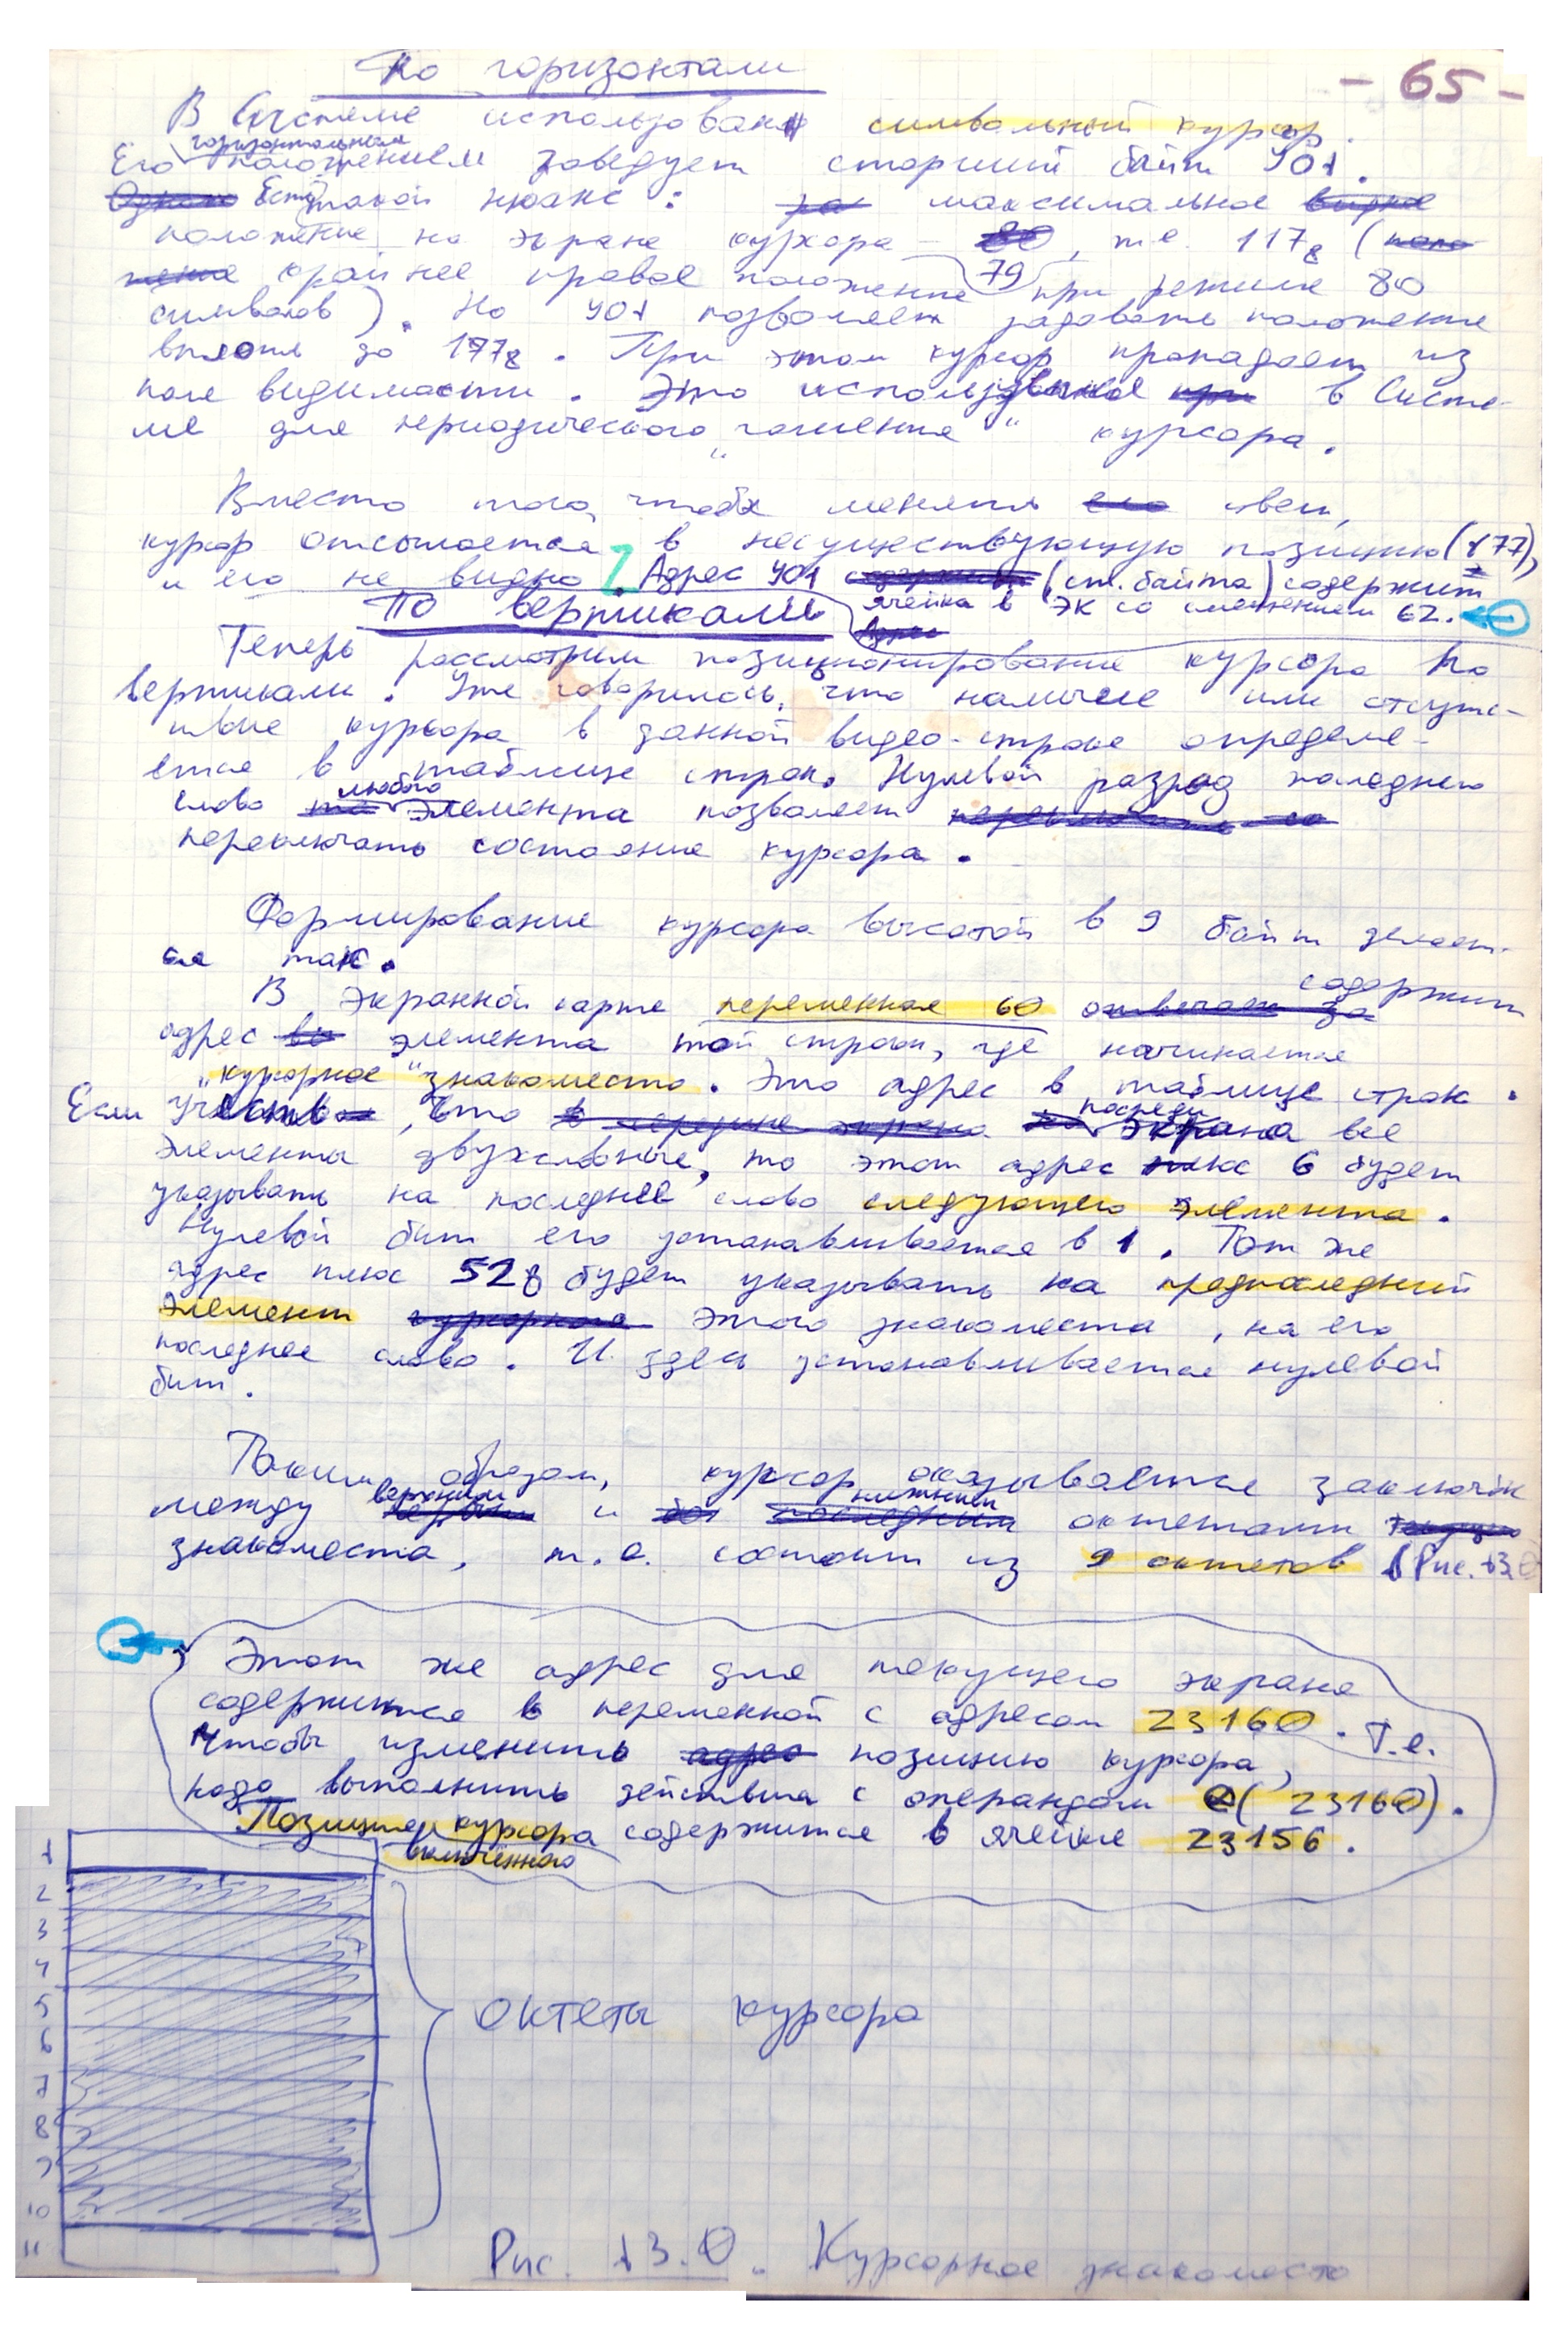 По горизонтали
- 65 -
В Системе использован символьный курсор.
горизонтальным
Его положением заведует старший байт УС1.
Однако Есть такой нюанс: максимальное видное
положение на экране курсора - 80, т.е. 117₈ (поло
79
жение крайнее правое положение при режиме 80
символов). Но УС1 позволяет задавать положение
вплоть до 177₈. При этом курсор пропадает из
поля видимости. Это используемое при в Систе-
ме для периодического „гашения“ курсора.
Вместо того, чтобы менять его цвет,
курсор отсылается в несуществующую позицию (177),
и его не видно. Адрес УС1 содержит (ст. байта) содержит
ячейка в ЭК со смещением 62.
По вертикали
Адрес
Теперь рассмотрим позиционирование курсора по
вертикали. Уже говорилось, что наличие или отсутс-
твие курсора в данной видео-строке определя-
ется в таблице строк. Нулевой разряд последнего
любого
слова элемента позволяет переключать со
переключать состояние курсора.
Формирование курсора высотой в 9 байт делает-
ся так.
содержит
В экранной карте переменная 60 отвечает за
адрес элемента той строки, где начинается
„курсорное“ знакоместо. Это адрес в таблице строк.
посреди
Если учесть, что в середине экрана экрана все
элементы двухсловные, то этот адрес плюс 6 будет
указывать на последнее слово следующего элемента.
Нулевой бит его устанавливается в 1. Тот же
адрес плюс 52₈ будет указывать на предпоследний
элемент курсорного этого знакоместа, на его
последнее слово. И здесь устанавливается нулевой
бит.
Таким образом, курсор оказывается заключён
верхним нижним
между первым и последним октетами текущего
знакоместа, т.е. состоит из 9 октетов (Рис. 13.0
Этот же адрес для текущего экрана
содержится в переменной с адресом 23160. Т.е.
Чтобы изменить адрес позицию курсора,
надо выполнить действия с операндом @(23160).
Позиция курсора содержится в ячейке 23156.
включённого
1
2
3
4
5
6
7
8
9
10
11
октеты курсора
Рис. 13.0. Курсорное знакоместо